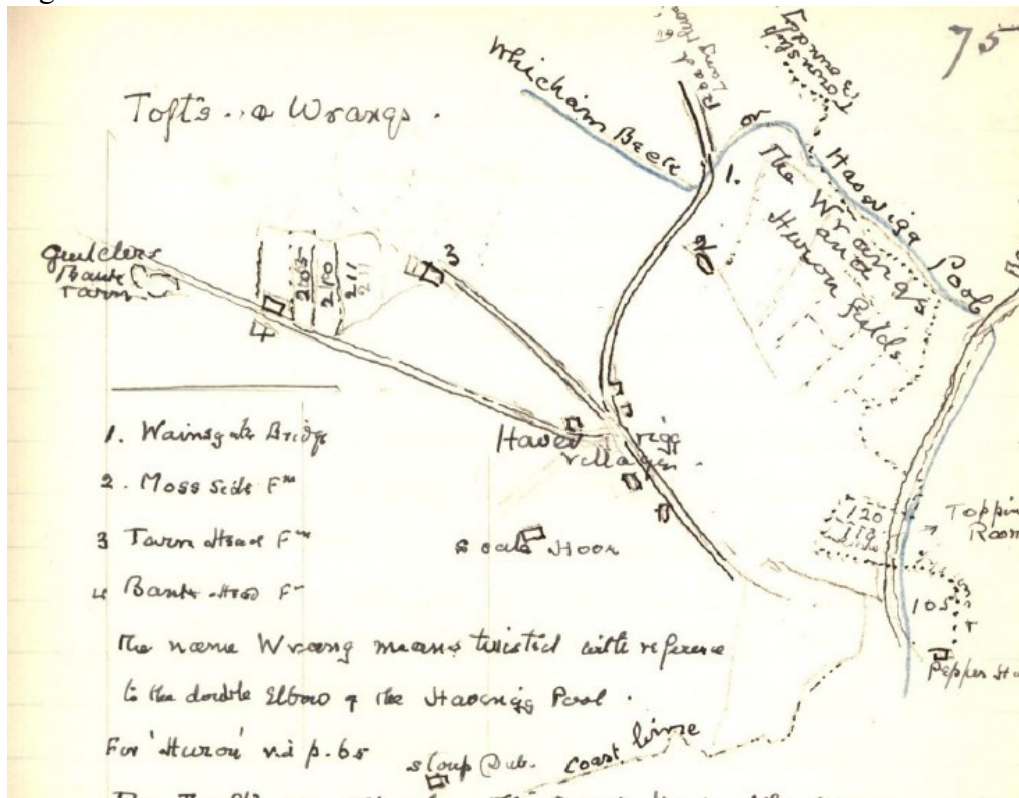 75
Tofts & Wrangs.
Whicham Beck
Road
to
Township
Boundary
1.
6
Haverigg Pool
The Wrangs
and
Huron fields
3
2
Gutters
Bank
Tarn
209
210
211
211
4
Haverigg
village.
Scale Hoor
120
119
Topping
Room
105
Pepper Ha
1. Wainsgate Bridge
2. Moss Side Fm
3 Tarn Head Fm
4 Bank Head Fm
The name Wrang means twisted with reference
to the double Elbow of the Haverigg Pool.
For 'Huron' vid p. 65
Sloup Dub.
coast line